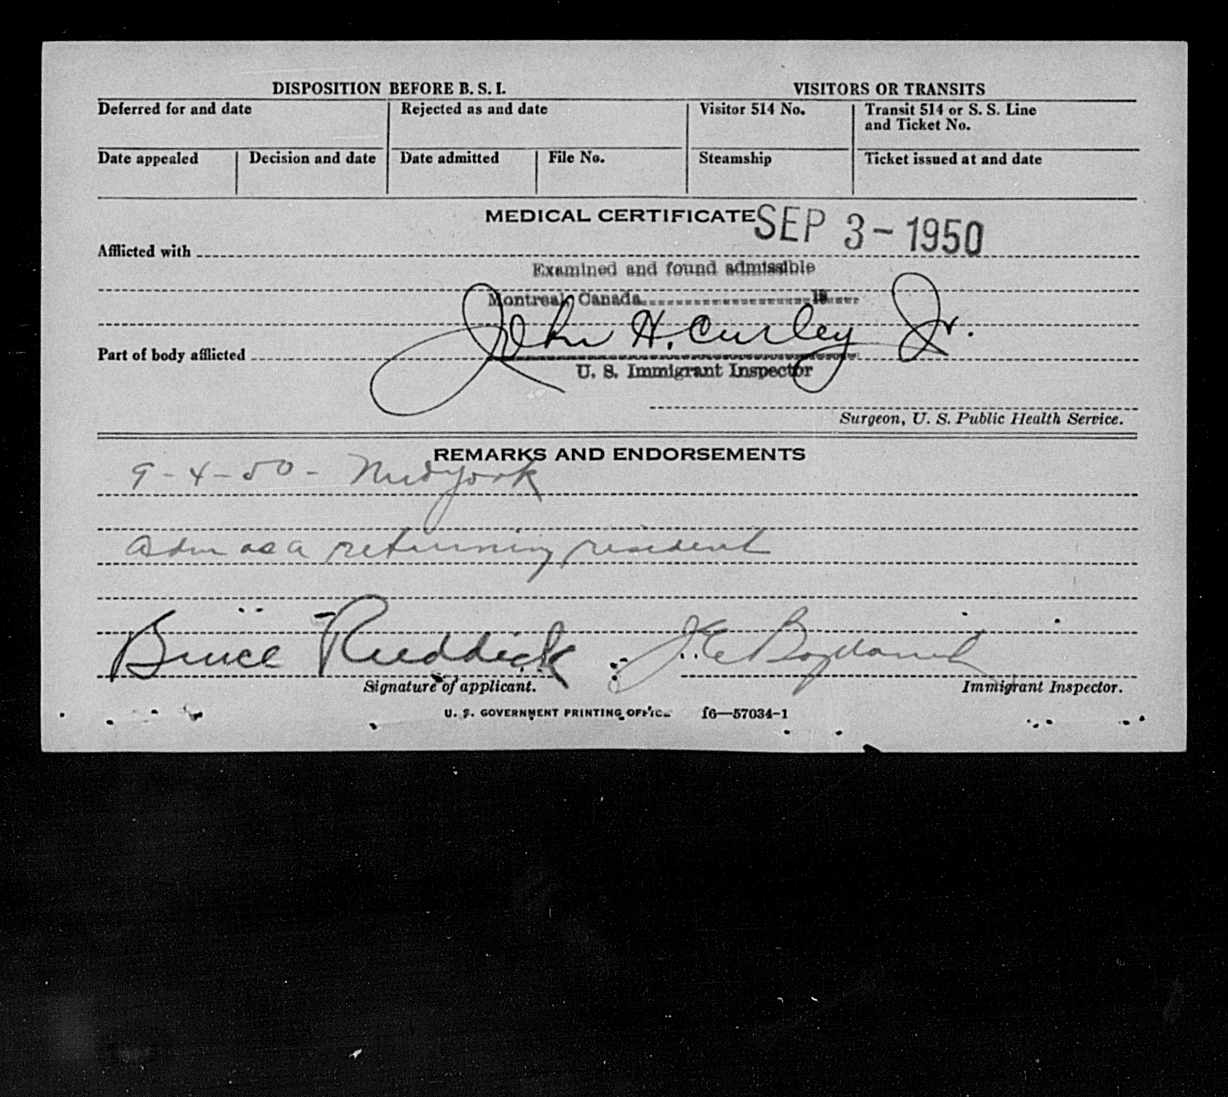 DISPOSITION BEFORE B. S. I.
VISITORS OR TRANSITS
Deferred for and date
Rejected as and date
Visitor 514 No.
Transit 514 or S. S. Line
and Ticket No.
Date appealed
Decision and date
Date admitted
File No.
Steamship
Ticket issued at and date
MEDICAL CERTIFICATE
SEP 3-1950
Afflicted with
Examined and found admissible
Montreal, Canada 19
John H. Curley Jr.
Part of body afflicted
U. S. Immigrant Inspector
Surgeon, U. S. Public Health Service.
REMARKS AND ENDORSEMENTS
9-4-50- New York
adm as a returning resident
Bruce Ruddick
Signature of applicant.
Immigrant Inspector.
U. S. GOVERNMENT PRINTING OFFICE 16—57034-1